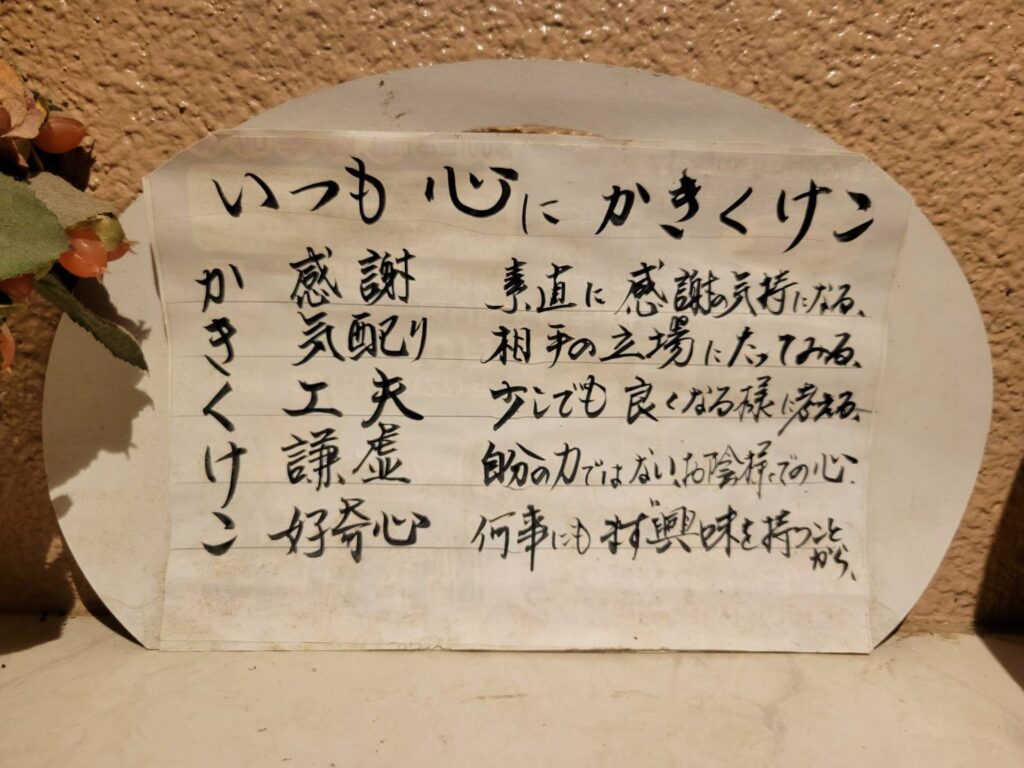 いつも心にかきくけこ
か 感謝 素直に感謝の気持になる、
き 気配り 相手の立場にたってみる、
く 工夫 少しでも良くなる様に考える、
け 謙虚 自分の力ではない、お陰様での心、
こ 好奇心 何事にもまず興味を持つことから、